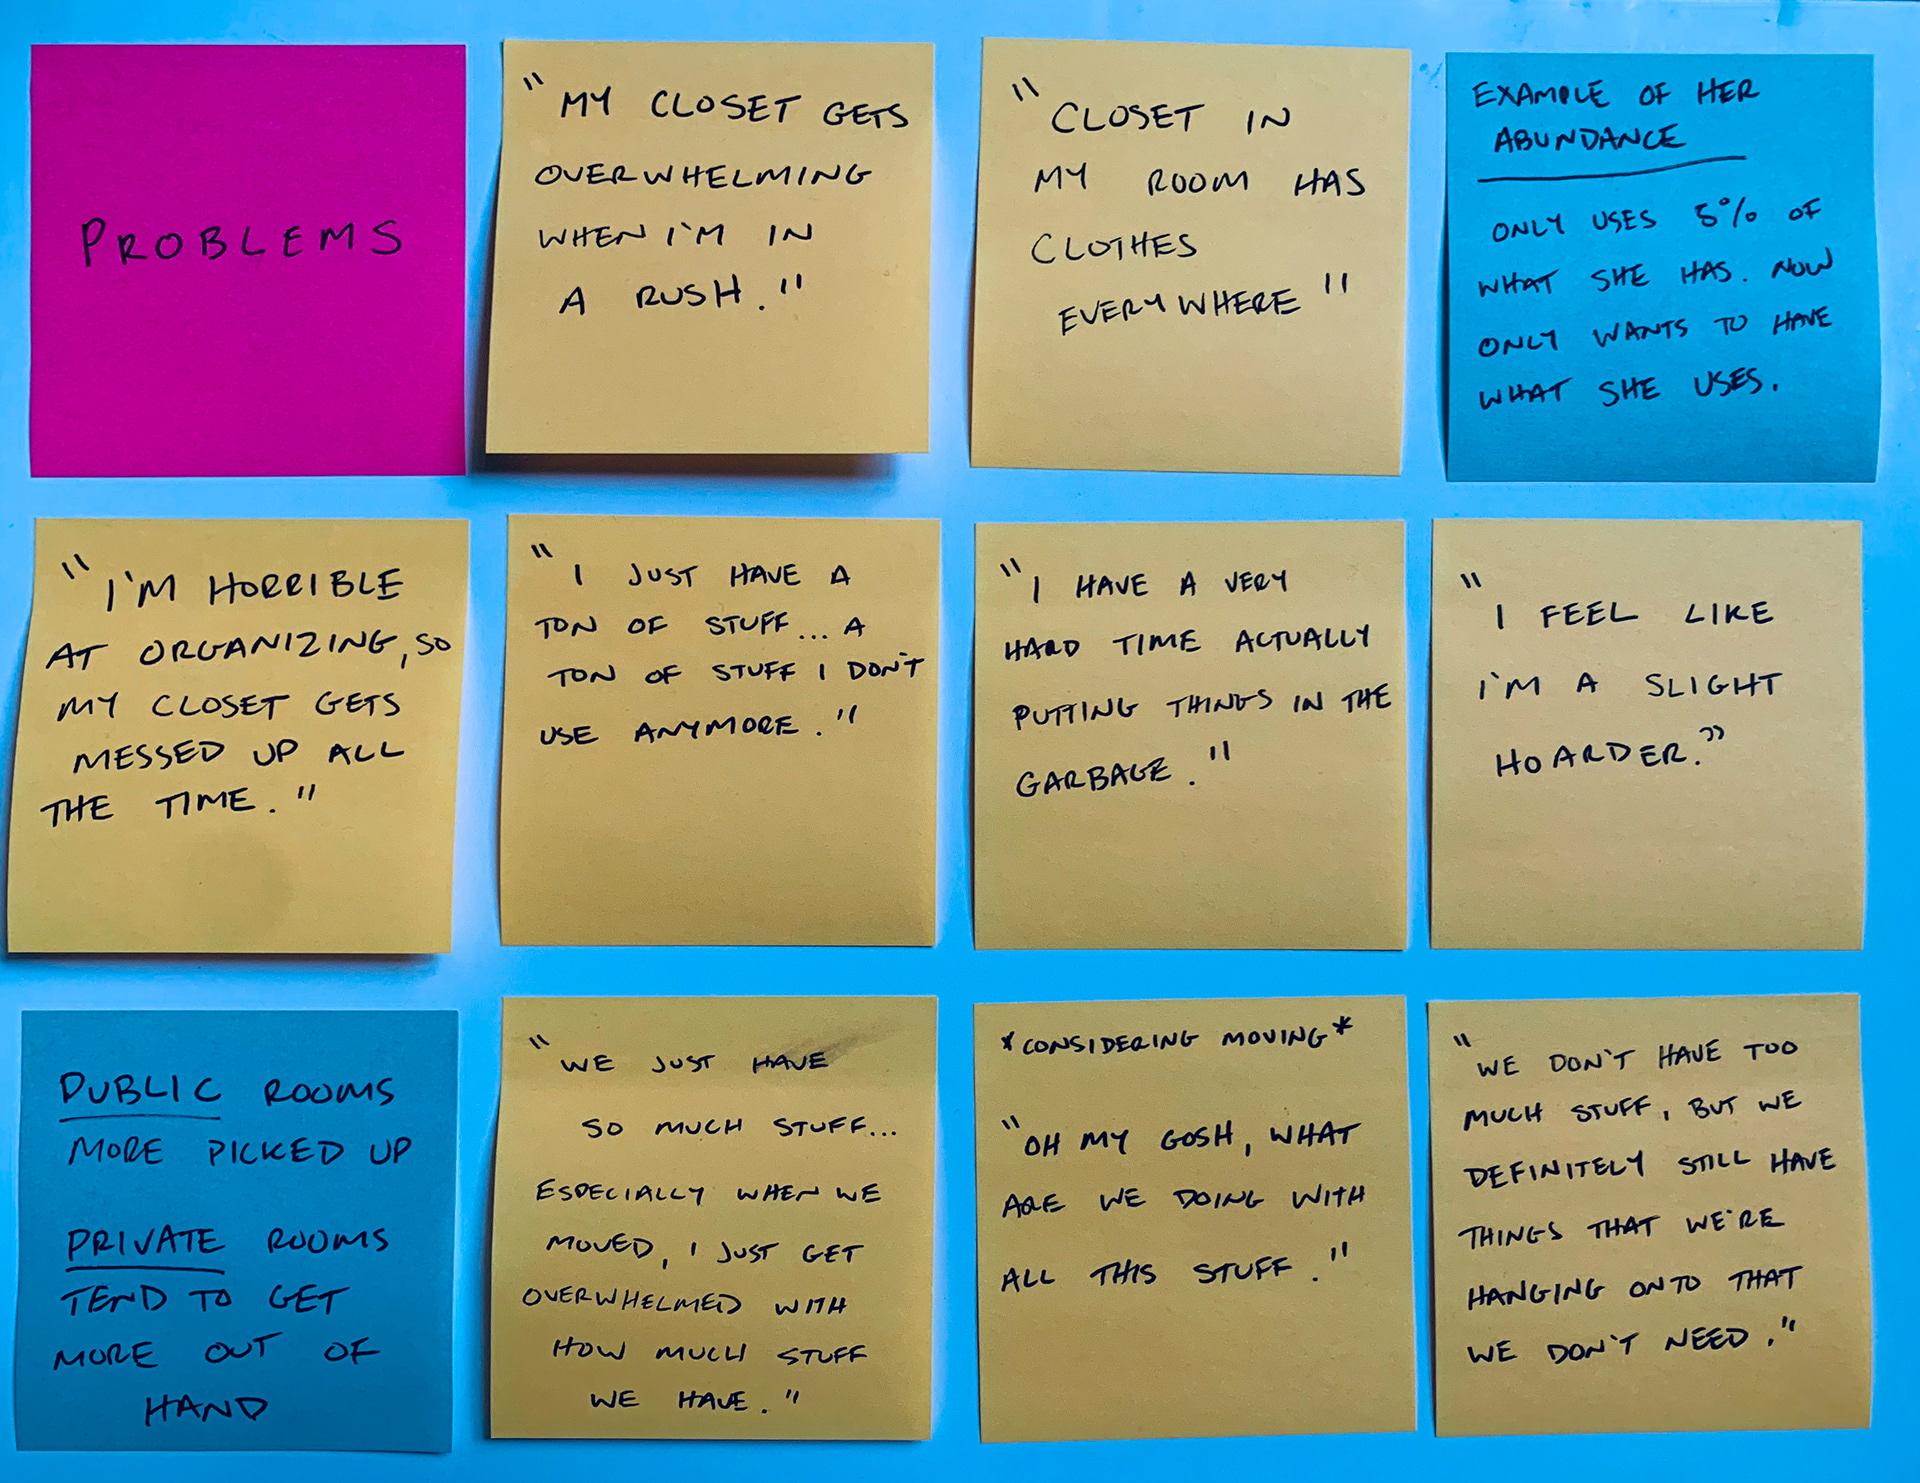 PROBLEMS
"MY CLOSET GETS
OVERWHELMING
WHEN I'M IN
A RUSH."
"CLOSET IN
MY ROOM HAS
CLOTHES
EVERYWHERE"
EXAMPLE OF HER
ABUNDANCE
ONLY USES 5% OF
WHAT SHE HAS. NOW
ONLY WANTS TO HAVE
WHAT SHE USES.
"I'M HORRIBLE
AT ORGANIZING, SO
MY CLOSET GETS
MESSED UP ALL
THE TIME."
"I JUST HAVE A
TON OF STUFF... A
TON OF STUFF I DON'T
USE ANYMORE."
"I HAVE A VERY
HARD TIME ACTUALLY
PUTTING THINGS IN THE
GARBAGE."
"I FEEL LIKE
I'M A SLIGHT
HOARDER."
PUBLIC ROOMS
MORE PICKED UP
PRIVATE ROOMS
TEND TO GET
MORE OUT OF
HAND
"WE JUST HAVE
SO MUCH STUFF...
ESPECIALLY WHEN WE
MOVED, I JUST GET
OVERWHELMED WITH
HOW MUCH STUFF
WE HAVE."
*CONSIDERING MOVING*
"OH MY GOSH, WHAT
ARE WE DOING WITH
ALL THIS STUFF."
"WE DON'T HAVE TOO
MUCH STUFF, BUT WE
DEFINITELY STILL HAVE
THINGS THAT WE'RE
HANGING ONTO THAT
WE DON'T NEED."